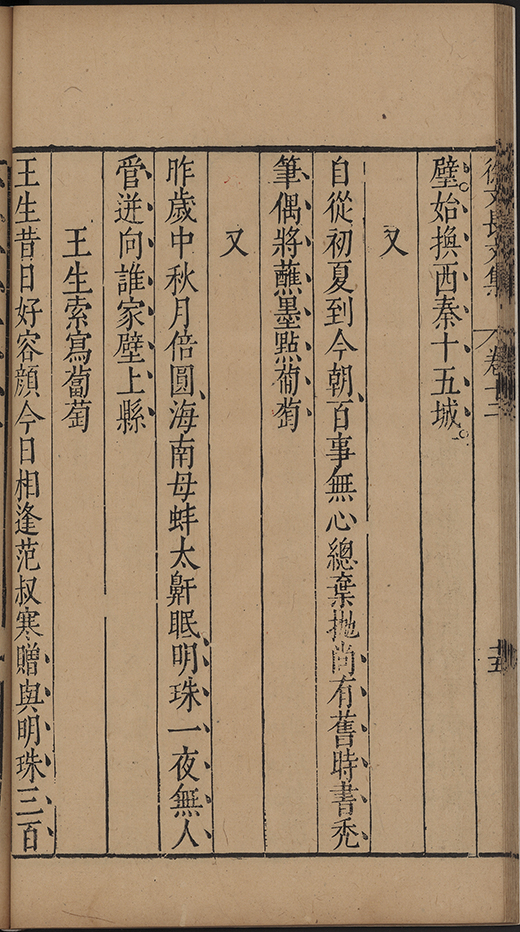 徐文長文集 卷十二 十五
璧始換西秦十五城
又
自從初夏到今朝百事無心總棄拋尚有舊時書禿
筆偶將蘸墨點葡萄
又
昨歲中秋月倍圓海南母蚌太鼾眠明珠一夜無人
管迸向誰家壁上縣
王生索寫蔔萄
王生昔日好容顔今日相逢范叔寒贈與明珠三百